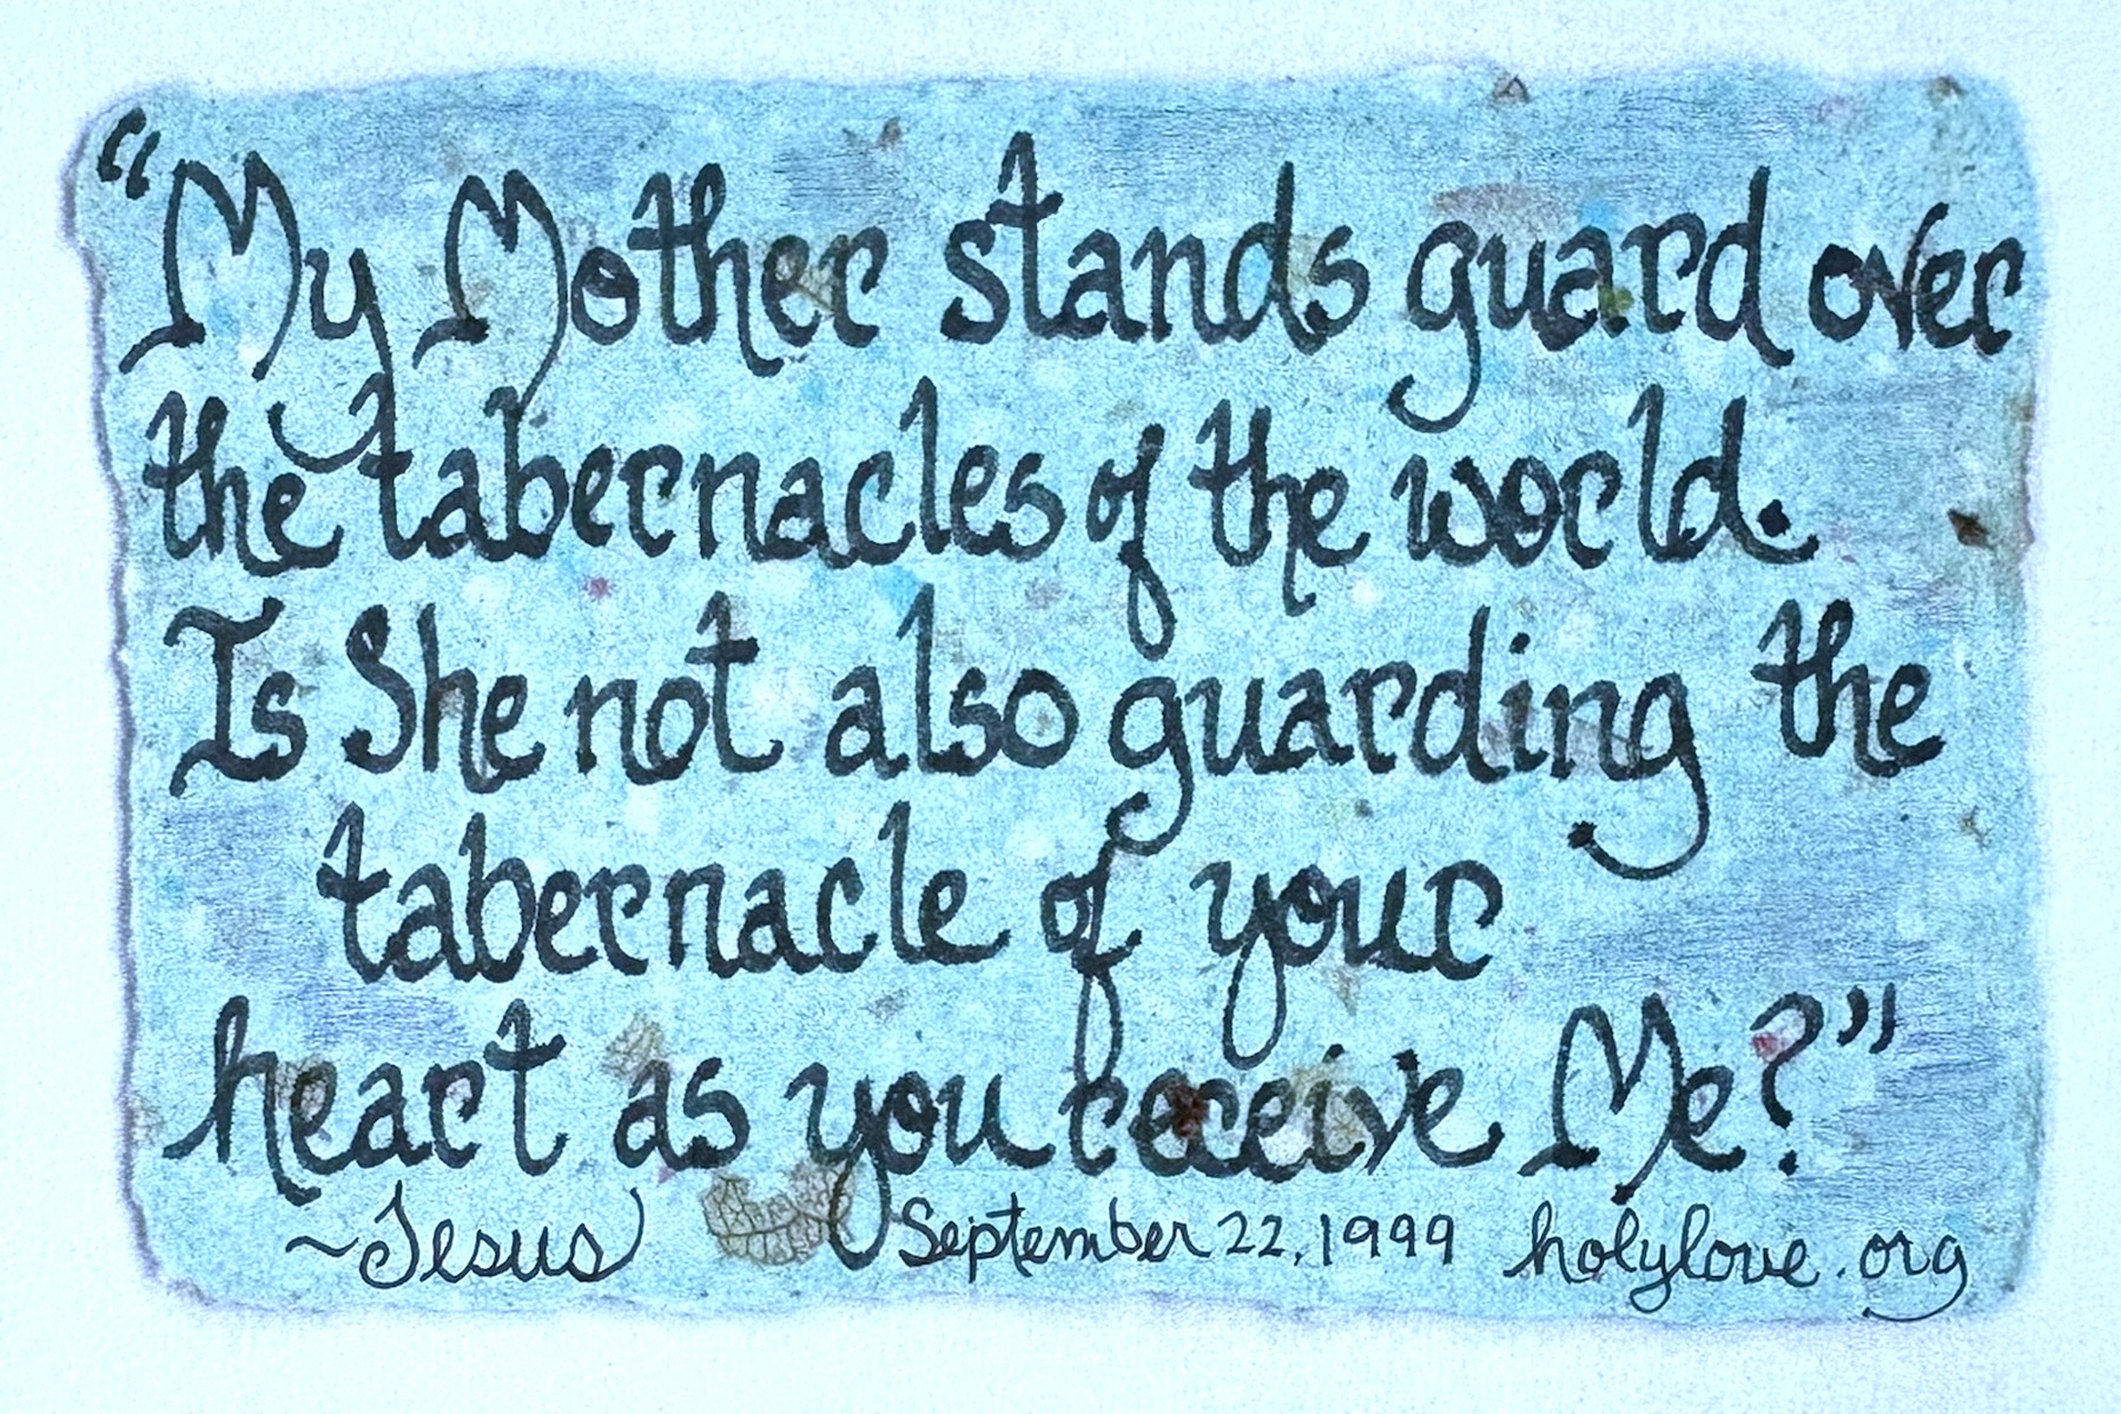 “My Mother stands guard over
the tabernacles of the world.
Is She not also guarding the
tabernacle of your
heart as you receive Me?”
~Jesus September 22, 1999 holylove.org